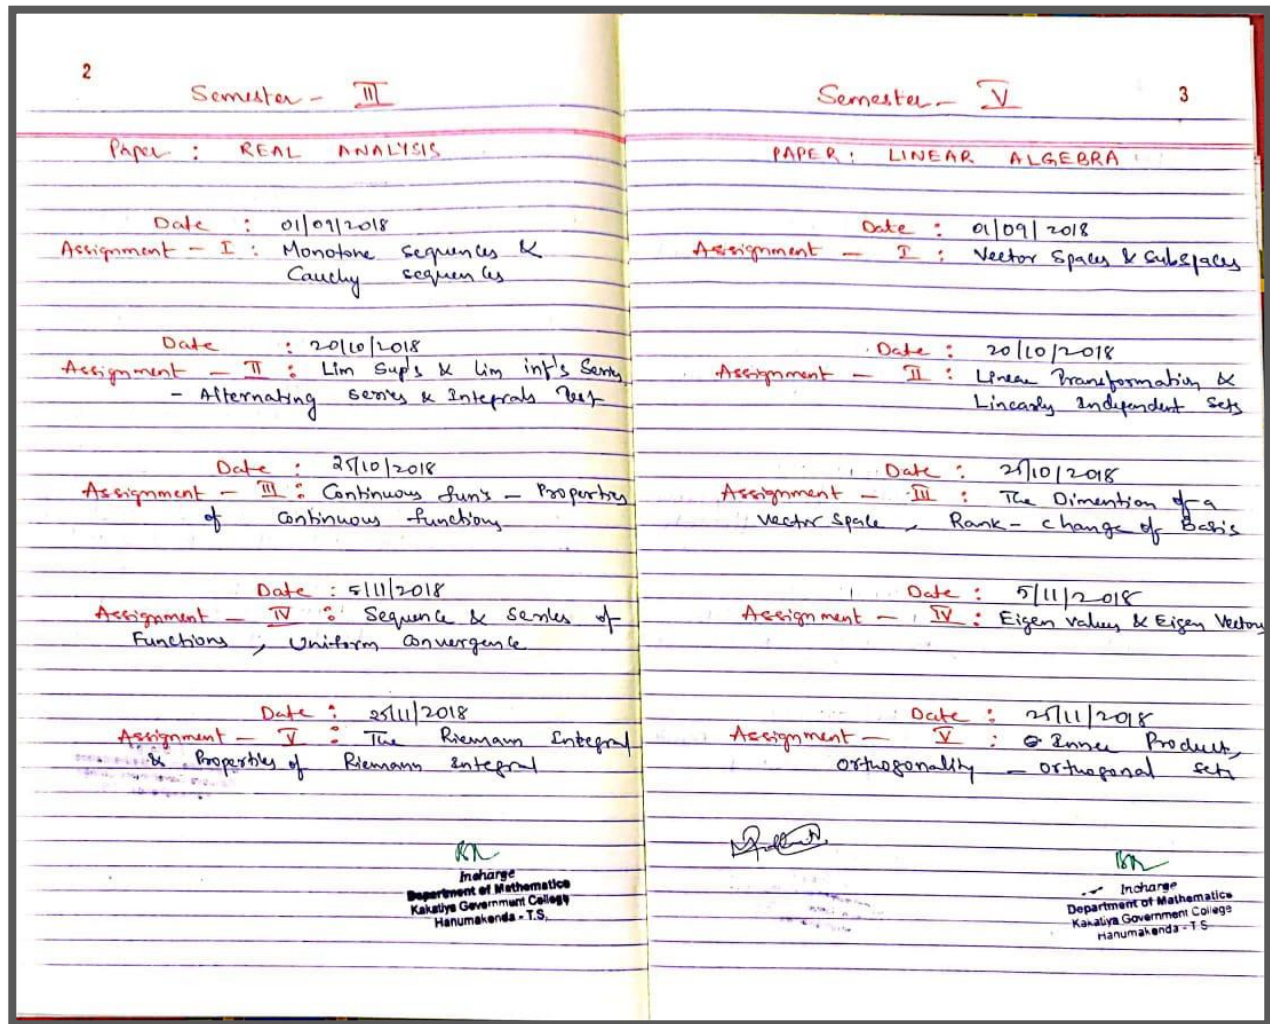 2
Semester - III
Paper : REAL ANALYSIS
Date : 01/09/2018
Assignment - I : Monotone sequences &
Cauchy sequences
Date : 20/10/2018
Assignment - II : Lim sup's & Lim inf's Series
- Alternating series & Integrals Test
Date : 25/10/2018
Assignment - III : Continuous fun's - Properties
of continuous functions
Date : 5/11/2018
Assignment - IV : Sequence & series of
Functions, Uniform convergence
Date : 25/11/2018
Assignment - V : The Riemann Integral
& Properties of Riemann Integral
Incharge
Department of Mathematics
Kakatiya Government College
Hanumakonda - T.S.
Semester - V
3
PAPER : LINEAR ALGEBRA
Date : 01/09/2018
Assignment - I : Vector Spaces & subspaces
Date : 20/10/2018
Assignment - II : Linear Transformation &
Linearly Independent sets
Date : 25/10/2018
Assignment - III : The Dimention of a
vector space, Rank - change of Basis
Date : 5/11/2018
Assignment - IV : Eigen values & Eigen Vectors
Date : 25/11/2018
Assignment - V : Inner Product,
orthogonality - orthogonal sets
Incharge
Department of Mathematics
Kakatiya Government College
Hanumakonda - T S